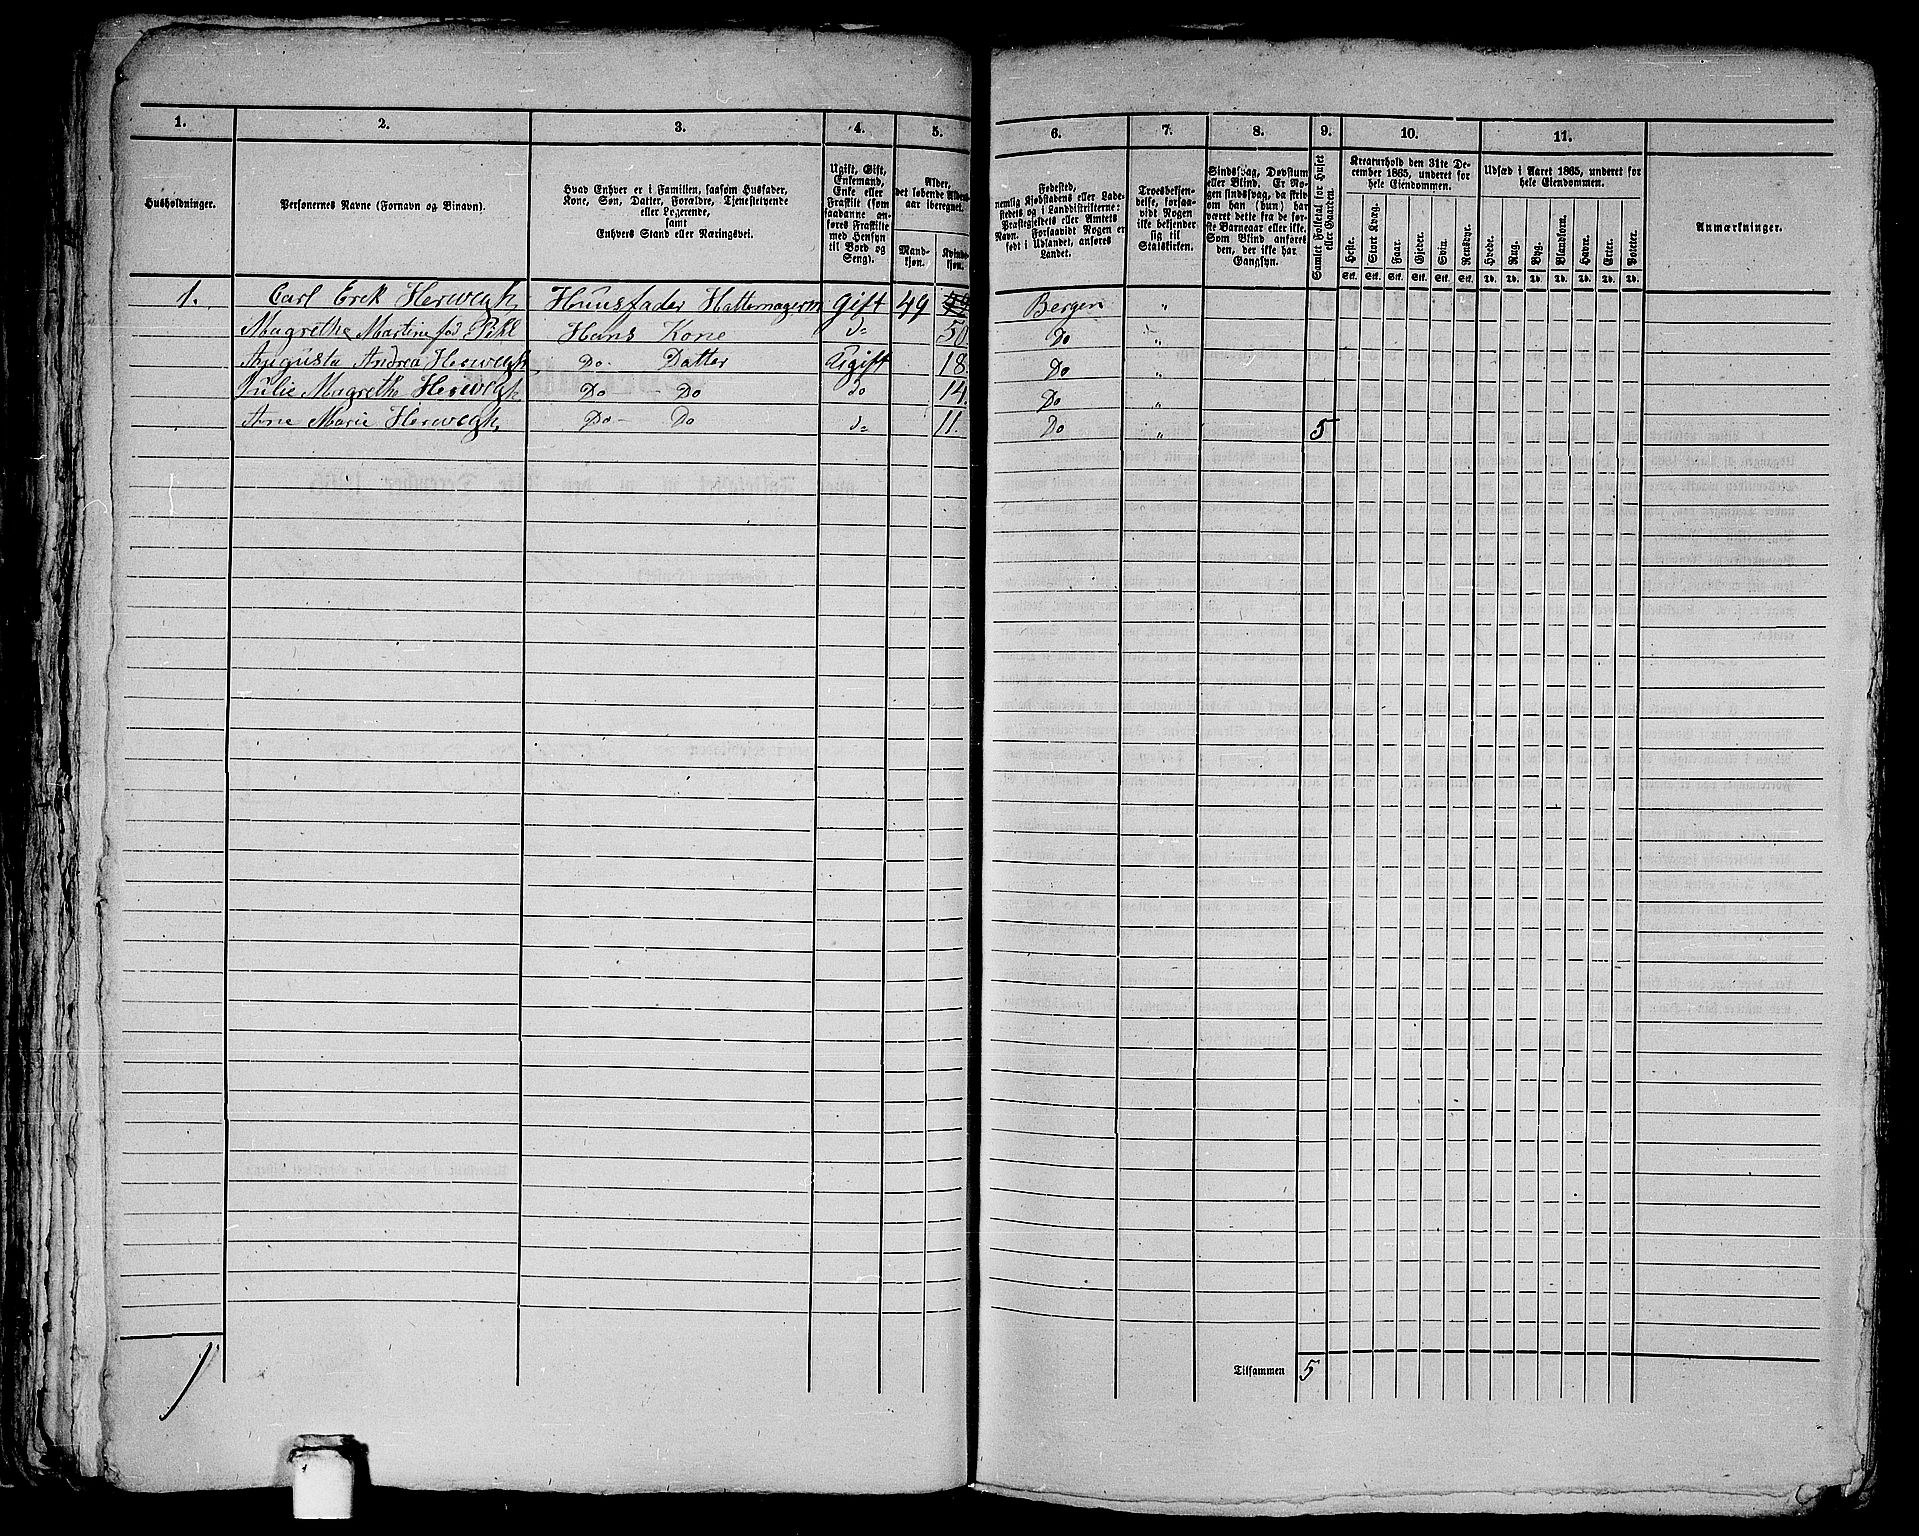 1. 2. 3. 4. 5. 6. 7. 8. 9. 10. 11.
Husholdninger.
Personernes Navne (Fornavn og Binavn).
Hvad Enhver er i Familien, saasom Husfader,
Kone, Søn, Datter, Forældre, Tjenestetyende
eller Logerende,
samt
Enhvers Stand eller Næringsvei.
Ugift, Gift,
Enkemand,
Enke eller
Fraskilt (som
saadanne an-
føres Fraskilte
med Hensyn
til Bord og
Seng).
Alder,
det løbende Alders-
aar iberegnet.
Mand-
kjøn.
Kvinde-
kjøn.
Fødested,
nemlig Kjøbstadens eller Lade-
stedets og i Landdistrikterne:
Præstegjeldets eller Amtets
Navn. Forsaavidt Nogen er
født i Udlandet, anføres
Landet.
Troesbekjen-
delse, forsaa-
vidt Nogen
ikke bekjender
sig til
Statskirken.
Sindssvag, Døvstum
eller Blind. Er No-
gen sindssvag, da skriv
om han (hun) har
været dette fra de før-
ste Barneaar eller ikke.
Som Blind anføres
den, der ikke har
Gangsyn.
Samlet Folketal for Huset
eller Gaarden.
Kreaturhold den 31te De-
cember 1865, underet for
hele Eiendommen.
Heste. Stort Kvæg. Faar. Gjeder. Svin. Rensdyr.
Stk. Stk. Stk. Stk. Stk. Stk.
Udsæd i Aaret 1865, underet for
hele Eiendommen.
Hvede. Rug. Byg. Blandkorn. Havre. Erter. Poteter.
Td. Td. Td. Td. Td. Td. Td.
Anmærkninger.
1. Carl Erik Herwegh Huusfader Hattemagerm Gift 49 Bergen "
Magrethe Martine fød Pihl Hans Kone do 50 Do "
Augusta Andrea Herwegh Do Datter Ugift 18 Do "
Julie Magrethe Herwegh Do Do do 14. Do "
Ane Marie Herwegh Do Do do 11. Do " 5
1
Tilsammen 5